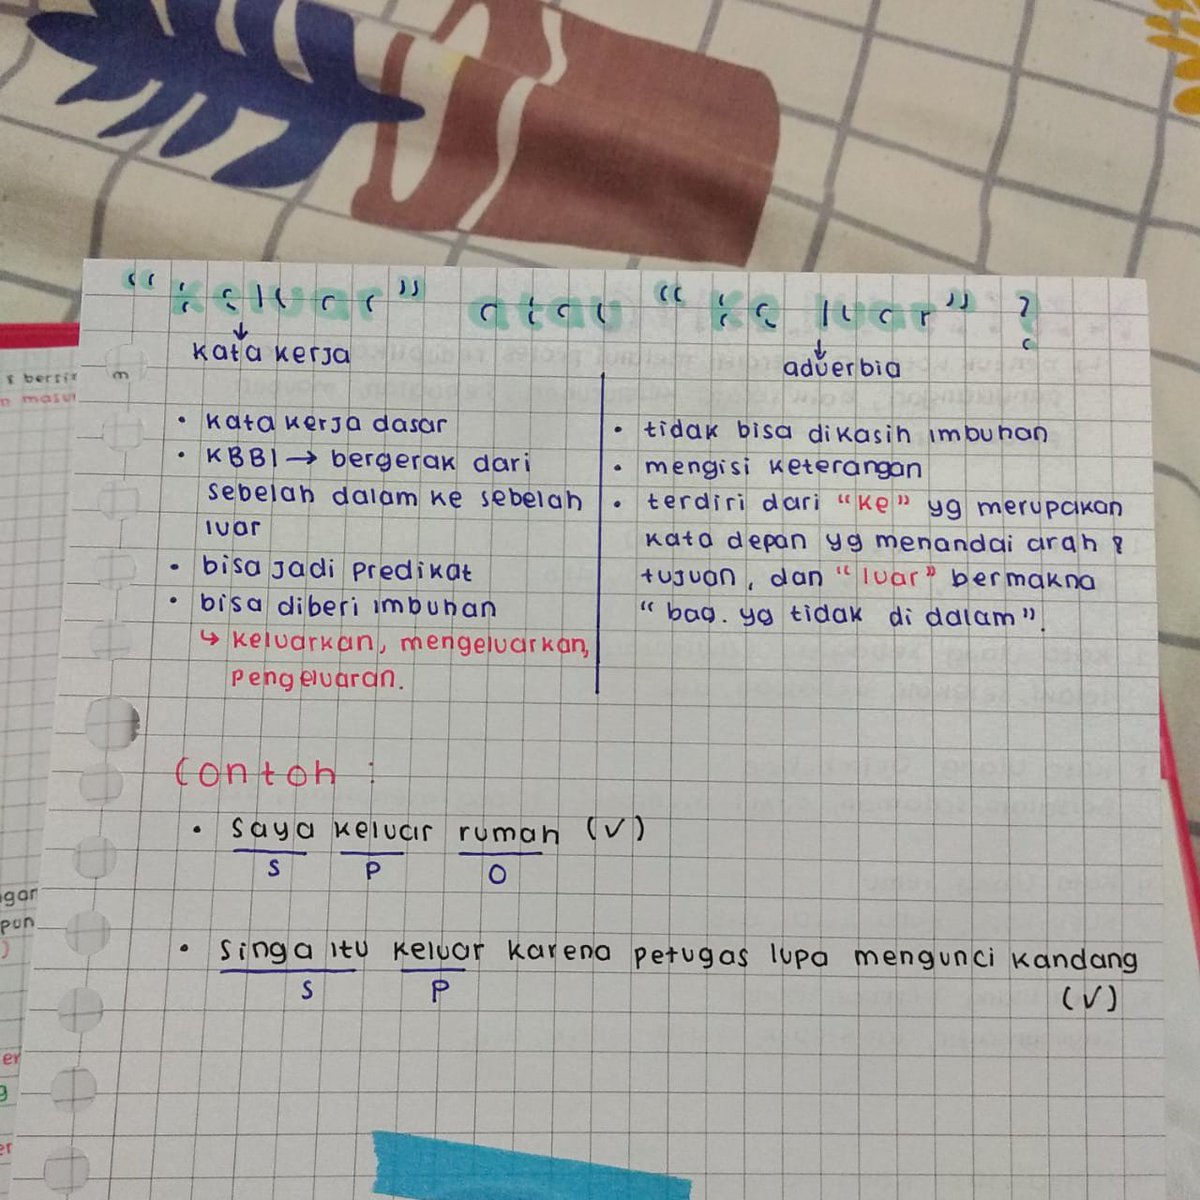 "keluar" atau "ke luar" ?
↓ ↓
kata kerja
adverbia
• kata kerja dasar
• KBBI → bergerak dari
sebelah dalam ke sebelah
luar
• bisa jadi predikat
• bisa diberi imbuhan
↳ keluarkan, mengeluarkan,
pengeluaran.
• tidak bisa dikasih imbuhan
• mengisi keterangan
• terdiri dari "ke" yg merupakan
kata depan yg menandai arah &
tujuan, dan "luar" bermakna
"bag. yg tidak di dalam".
Contoh :
• saya keluar rumah (√)
S P O
• Singa itu keluar karena petugas lupa mengunci kandang
S P (√)
m
gan
pun
)
er
g
er